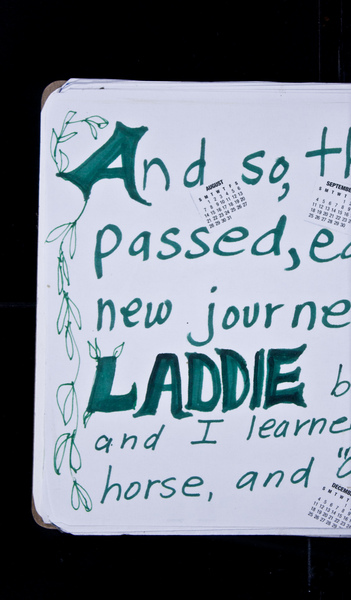 And so, th
passed, ea
new journe
LADDIE b
and I learne
horse, and "
AUGUST
S M T W T F S
SEPTEMBE
S M T W T
DECEMBE
S M T W T